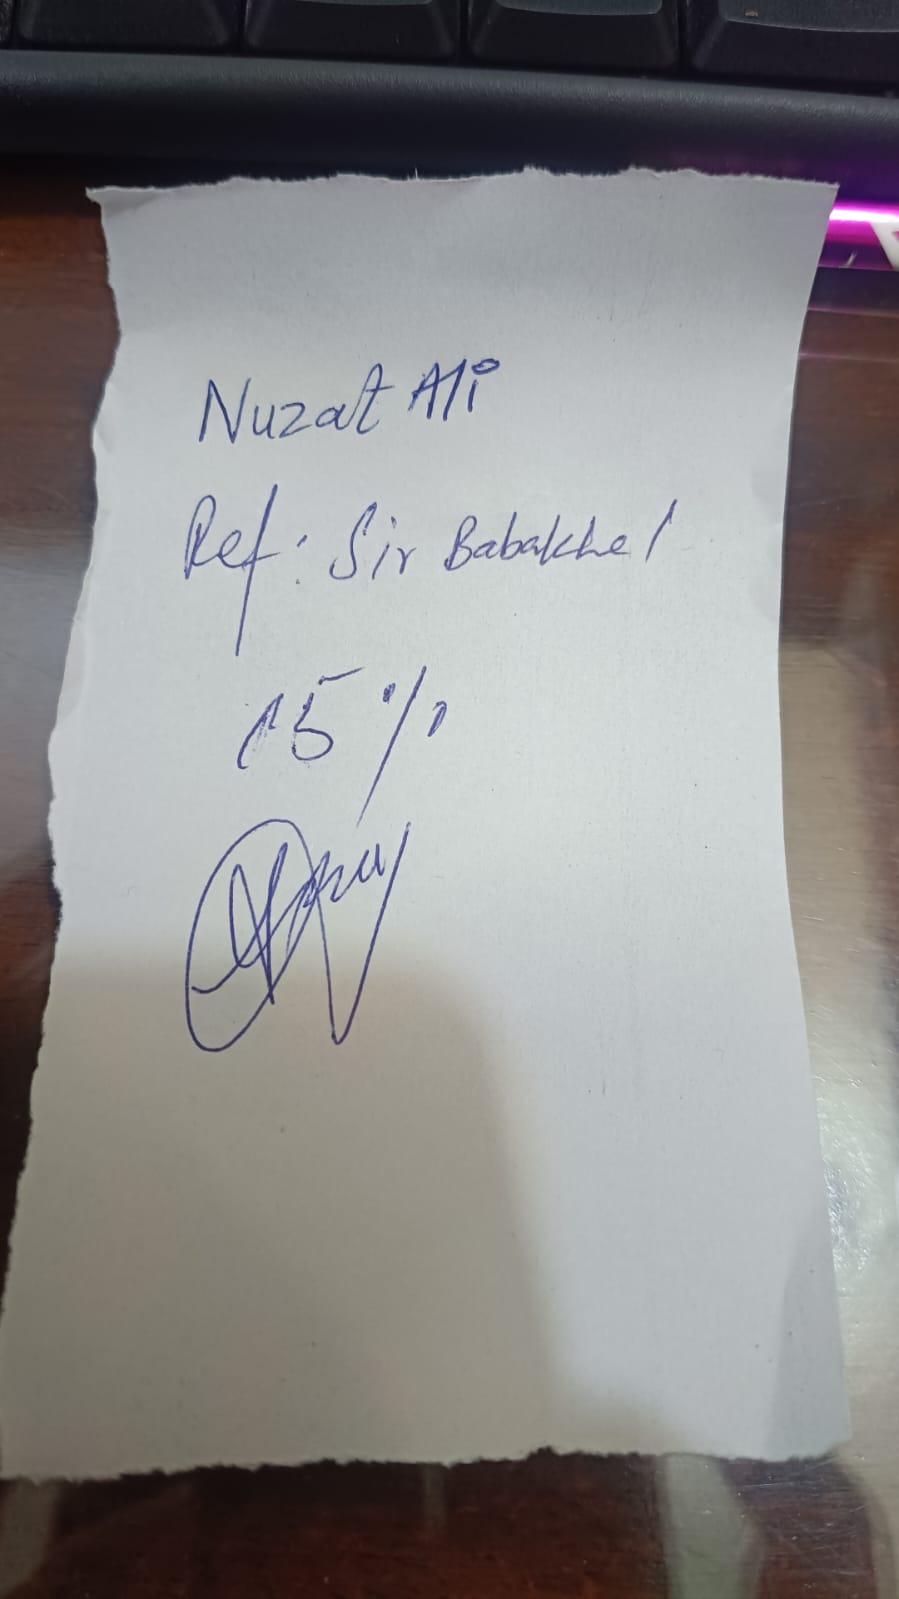 Nuzat Ali
Ref: Sir Babakhel
15%